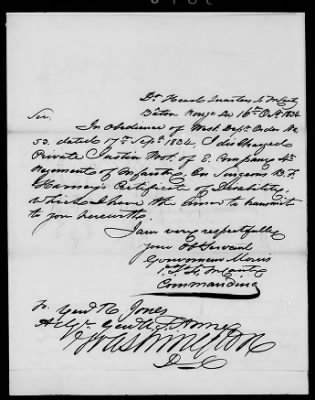 Hd Head Quarters 4 Infanty
Baton Rouge La 16th Oct. 1834
Sir.
In Obedience of West. Dept. Order No.
53. dated 17th Sept. 1834, I discharged
Private Justin of E. Company 4th
Regiment of Infantry, On Surgeon B. F.
Harney's Certificate of Disability,
which I have the honor to transmit
to you herewith.
I am very respectfully
your Obt Servant
Gouverneur Morris
1. Lt. 4. Infanty
Commanding
To Genl R Jones
Adjt. Genl U. S. Army
Washington
D C